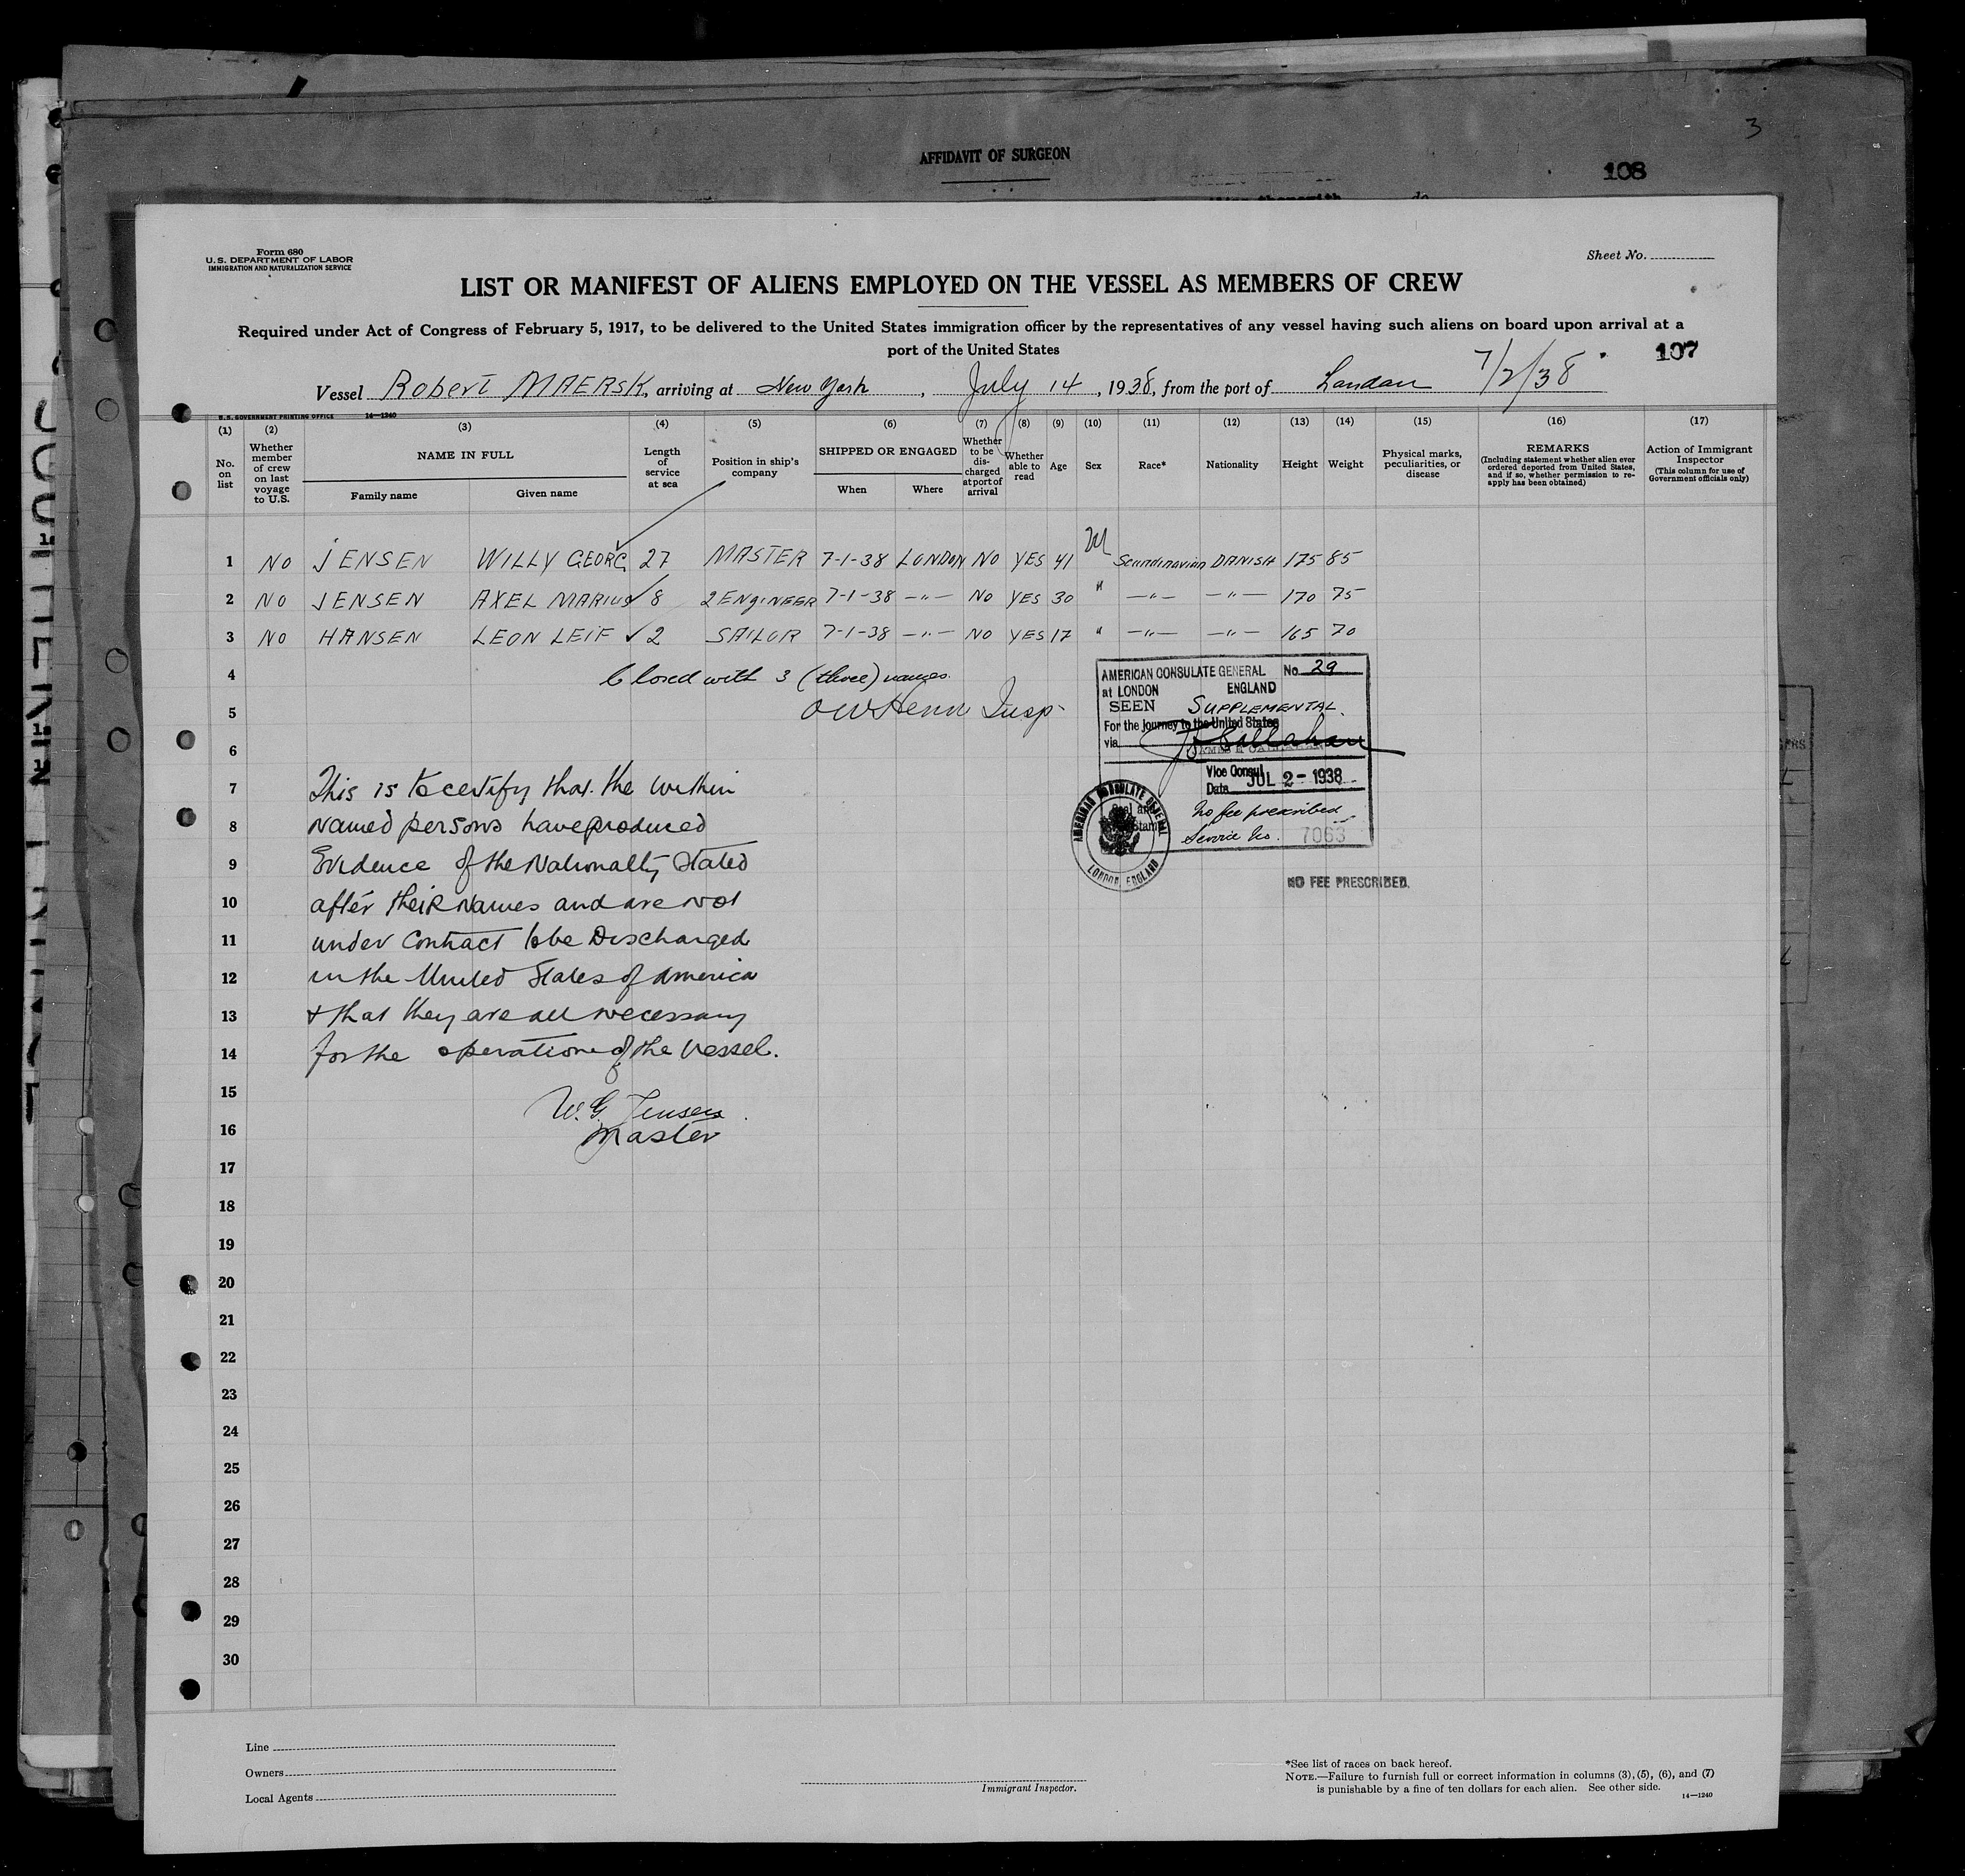 AFFIDAVIT OF SURGEON
3
108
Form 680
U.S. DEPARTMENT OF LABOR
IMMIGRATION AND NATURALIZATION SERVICE
Sheet No.
LIST OR MANIFEST OF ALIENS EMPLOYED ON THE VESSEL AS MEMBERS OF CREW
Required under Act of Congress of February 5, 1917, to be delivered to the United States immigration officer by the representatives of any vessel having such aliens on board upon arrival at a
port of the United States
107
Vessel Robert MAERSK, arriving at New York, July 14, 1938, from the port of London 7/2/38
U.S. GOVERNMENT PRINTING OFFICE 14—1240
(1) (2) (3) (4) (5) (6) (7) (8) (9) (10) (11) (12) (13) (14) (15) (16) (17)
No. on list
Whether member of crew on last voyage to U.S.
NAME IN FULL
Family name Given name
Length of service at sea
Position in ship's company
SHIPPED OR ENGAGED
When Where
Whether to be discharged at port of arrival
Whether able to read
Age
Sex
Race*
Nationality
Height
Weight
Physical marks, peculiarities, or disease
REMARKS
(Including statement whether alien ever ordered deported from United States, and if so, whether permission to reapply has been obtained)
Action of Immigrant Inspector
(This column for use of Government officials only)
1 NO JENSEN WILLY GEORG 27 MASTER 7-1-38 LONDON NO YES 41 M Scandinavian DANISH 175 85
2 NO JENSEN AXEL MARIUS 8 2 ENGINEER 7-1-38 —"— NO YES 30 " —"— —"— 170 75
3 NO HANSEN LEON LEIF 2 SAILOR 7-1-38 —"— NO YES 17 " —"— —"— 165 70
4 Closed with 3 (three) names.
5 Insp
6
7 This is to certify that the within
8 Named persons have produced
9 Evidence of the Nationality Stated
10 after their Names and are not
11 under Contract to be Discharged
12 in the United States of America
13 + that they are all necessary
14 for the operation of the Vessel.
15 W. G. Jensen
16 Master
17
18
19
20
21
22
23
24
25
26
27
28
29
30
AMERICAN CONSULATE GENERAL No. 29
at LONDON ENGLAND
SEEN SUPPLEMENTAL
For the journey to the United States
via
Vice Consul
Date JUL 2 - 1938
Seal and Stamp
No fee prescribed
Service No. 7063
AMERICAN CONSULATE GENERAL
LONDON, ENGLAND
NO FEE PRESCRIBED.
Line
Owners
Local Agents
Immigrant Inspector.
*See list of races on back hereof.
NOTE.—Failure to furnish full or correct information in columns (3), (5), (6), and (7)
is punishable by a fine of ten dollars for each alien. See other side.
14—1240